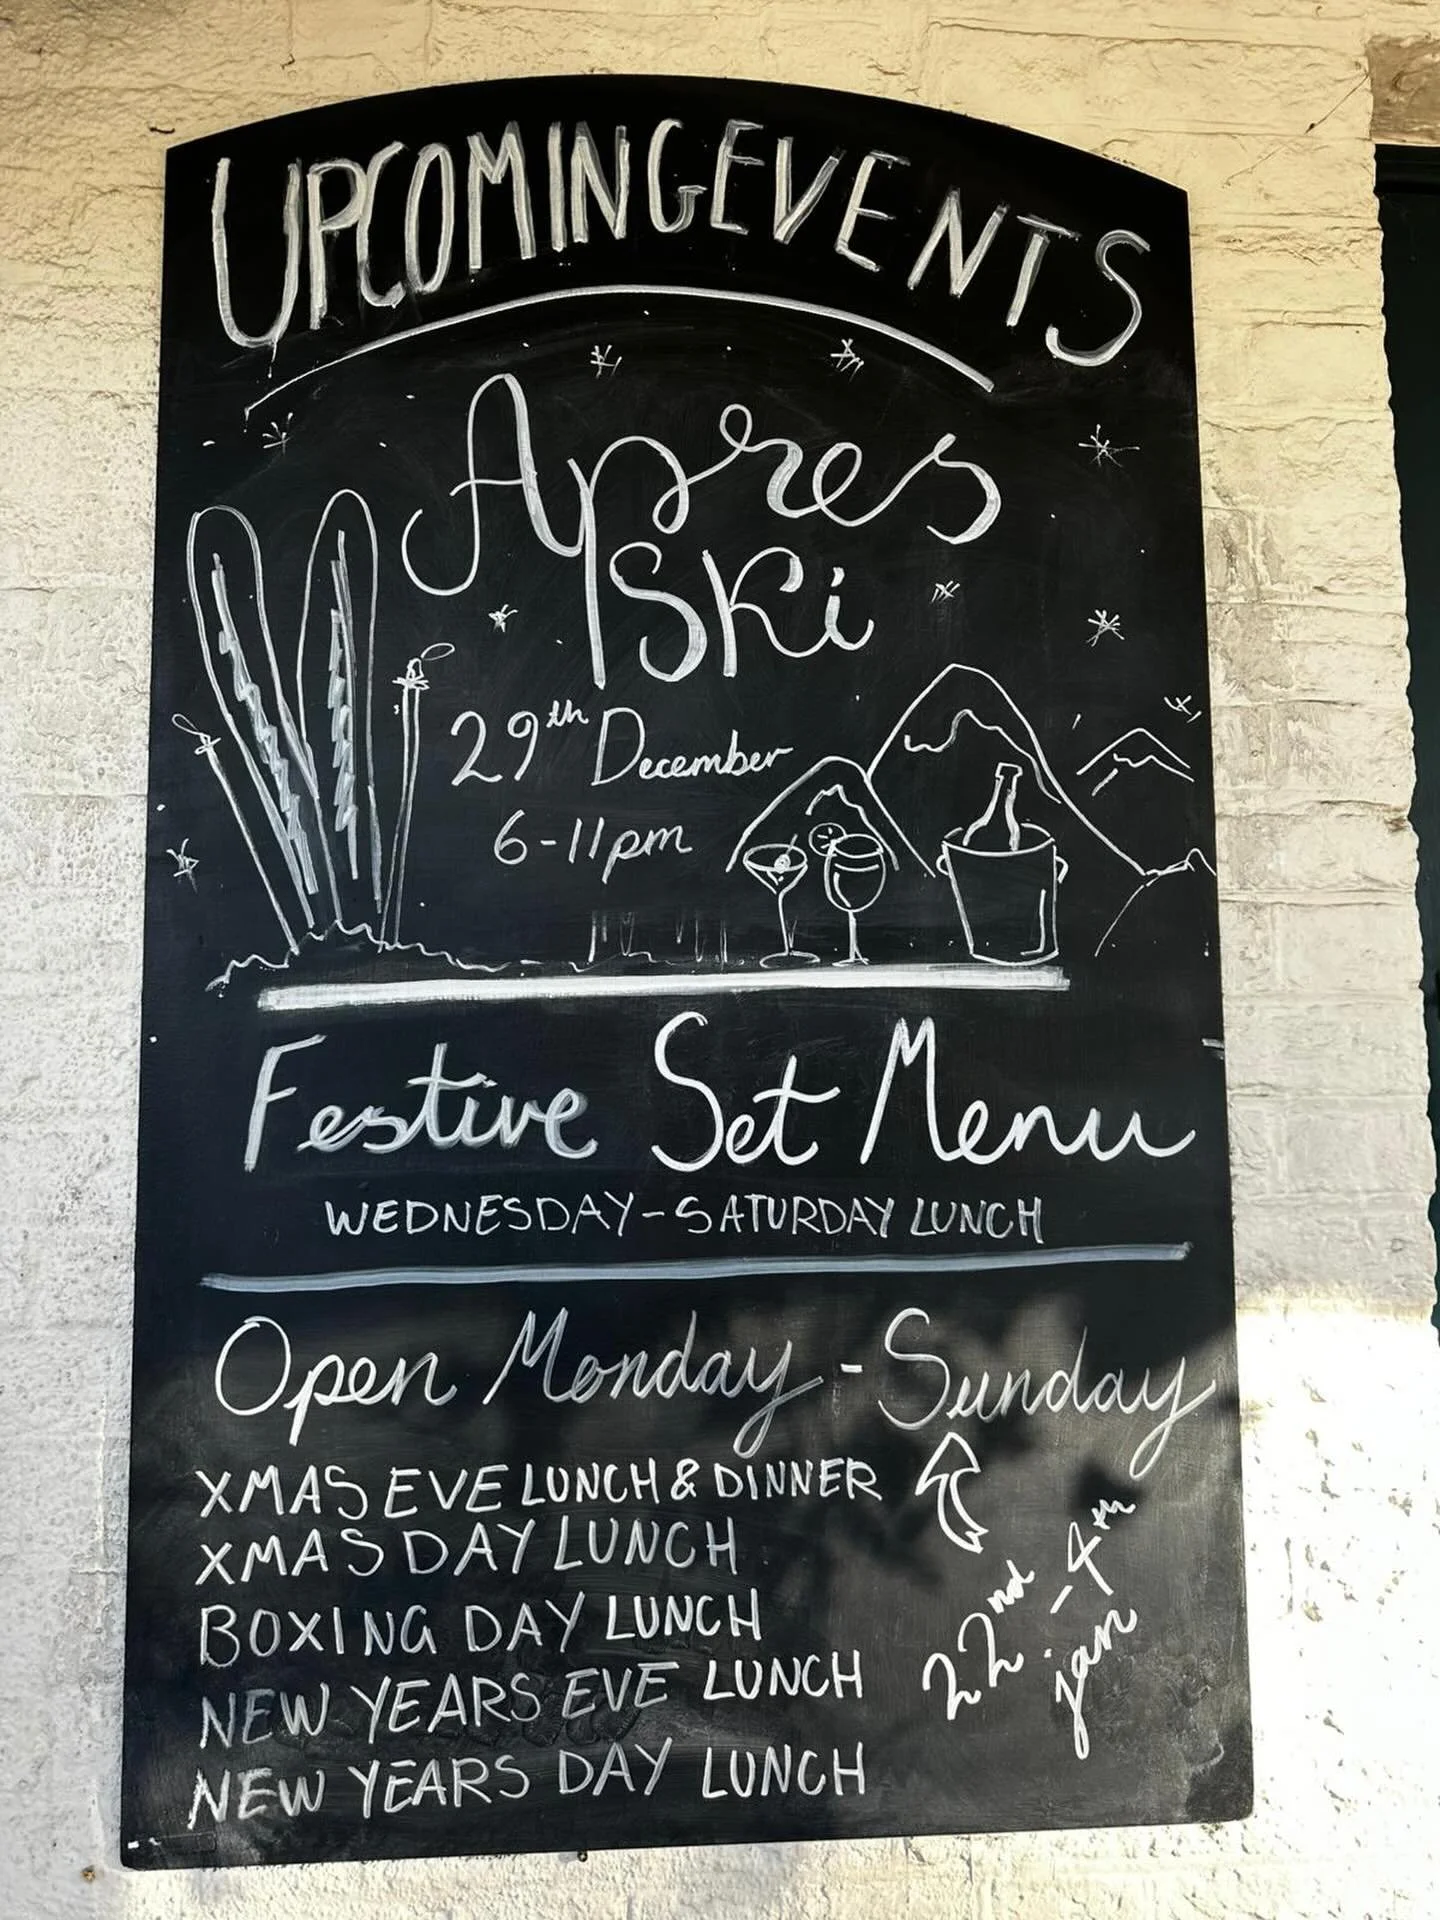 UPCOMING EVENTS
Apres
Ski
29th December
6-11pm
Festive Set Menu
WEDNESDAY-SATURDAY LUNCH
Open Monday - Sunday
XMAS EVE LUNCH & DINNER
XMAS DAY LUNCH
BOXING DAY LUNCH
NEW YEARS EVE LUNCH
NEW YEARS DAY LUNCH
22nd - 4th
jan